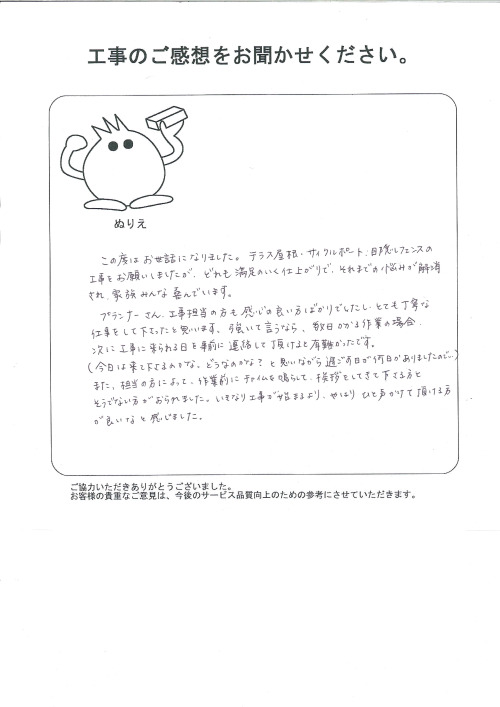 工事のご感想をお聞かせください。
ぬりえ
この度はお世話になりました。テラス屋根・サイクルポート、目隠しフェンスの
工事をお願いしましたが、どれも満足のいく仕上がりで、それまでの悩みが解消
され、家族みんな喜んでいます。
プランナーさん、工事担当の方も感じの良い方ばかりでしたし、とても丁寧な
仕事をして下さったと思います。強いて言うなら、数日かかる作業の場合、
次に工事に来られる日を事前に連絡して頂けると有難かったです。
(今日は来て下さるのかな、どうなのかな?と思いながら過ごす日が何日かありましたので…)
また、担当の方によって、作業前にチャイムを鳴らして、挨拶をしてきて下さる方と
そうでない方がおられました。いきなり工事が始まるより、やはりひと声かけて頂ける方
が良いなと感じました。
ご協力いただきありがとうございました。
お客様の貴重なご意見は、今後のサービス品質向上のための参考にさせていただきます。